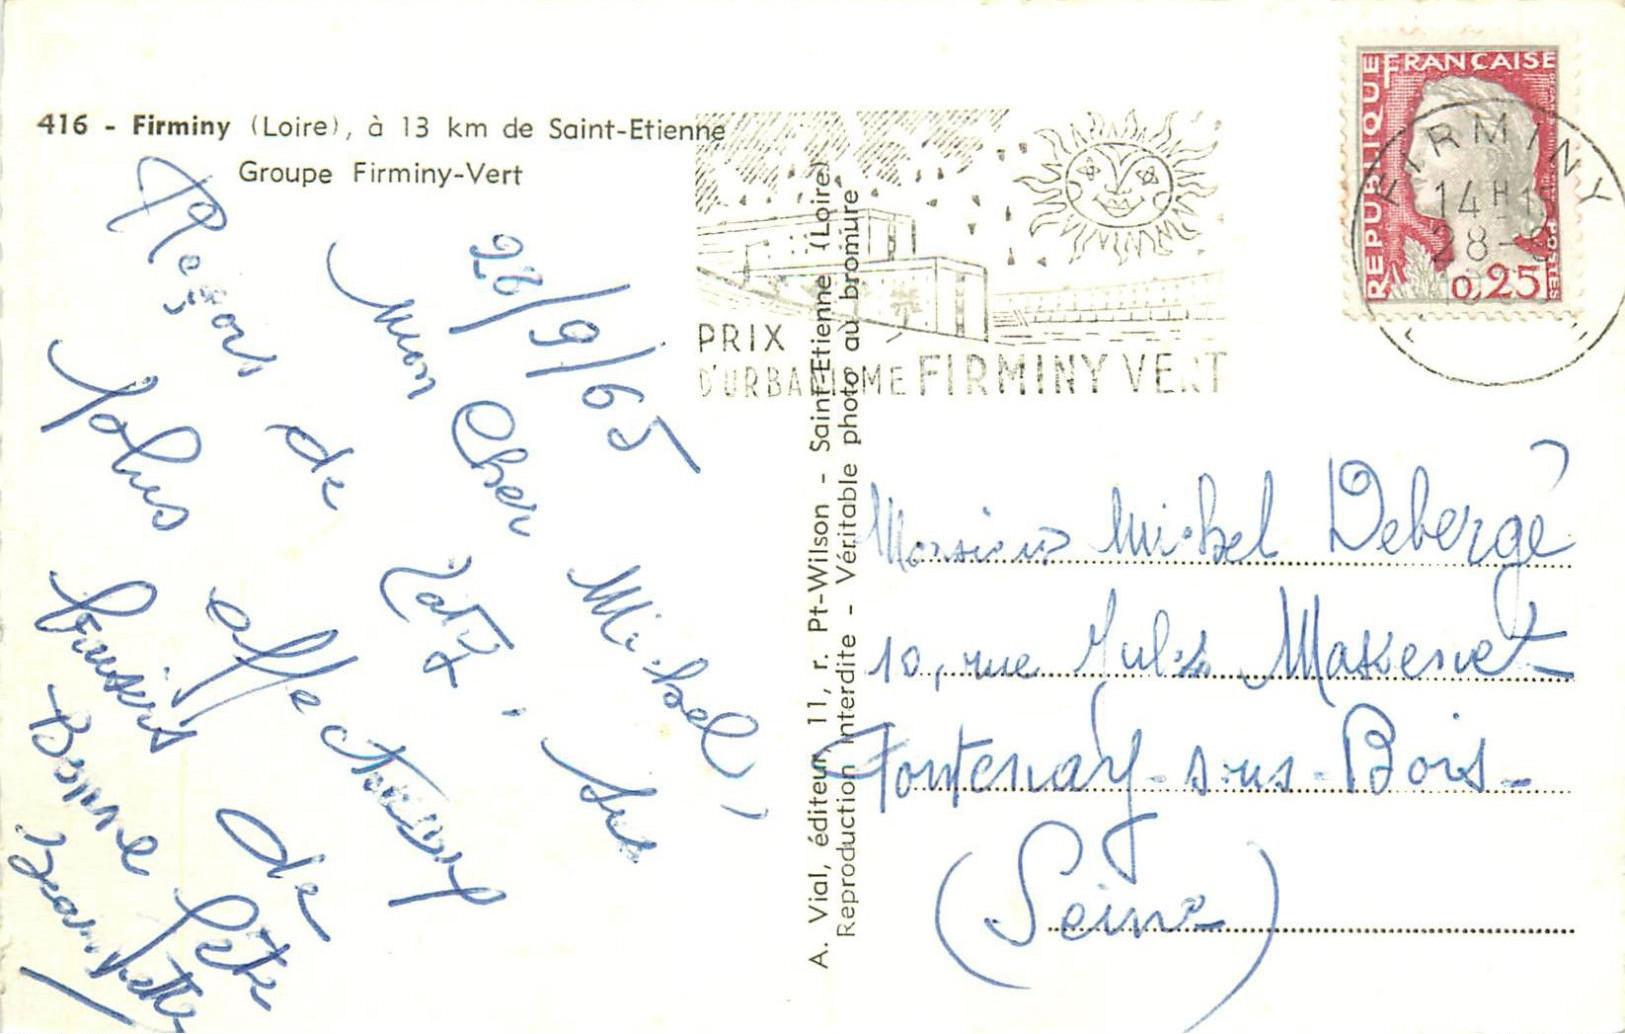 416 - Firminy (Loire), à 13 km de Saint-Etienne
Groupe Firminy-Vert
28/9/65
Mon Cher Michel,
Reçois de Taty, tes
plus affectueux
baisers de
Bonne fête
Jeannette
A. Vial, éditeur, 11, r. Pt-Wilson - Saint-Etienne (Loire)
Reproduction interdite - Véritable photo au bromure
PRIX
D'URBANISME FIRMINY VERT
RÉPUBLIQUE FRANÇAISE
POSTES
0,25
FIRMINY
14 H
28-9
Monsieur Michel Debergé
10, rue Jules Massenet
Fontenay-sous-Bois-
(Seine)